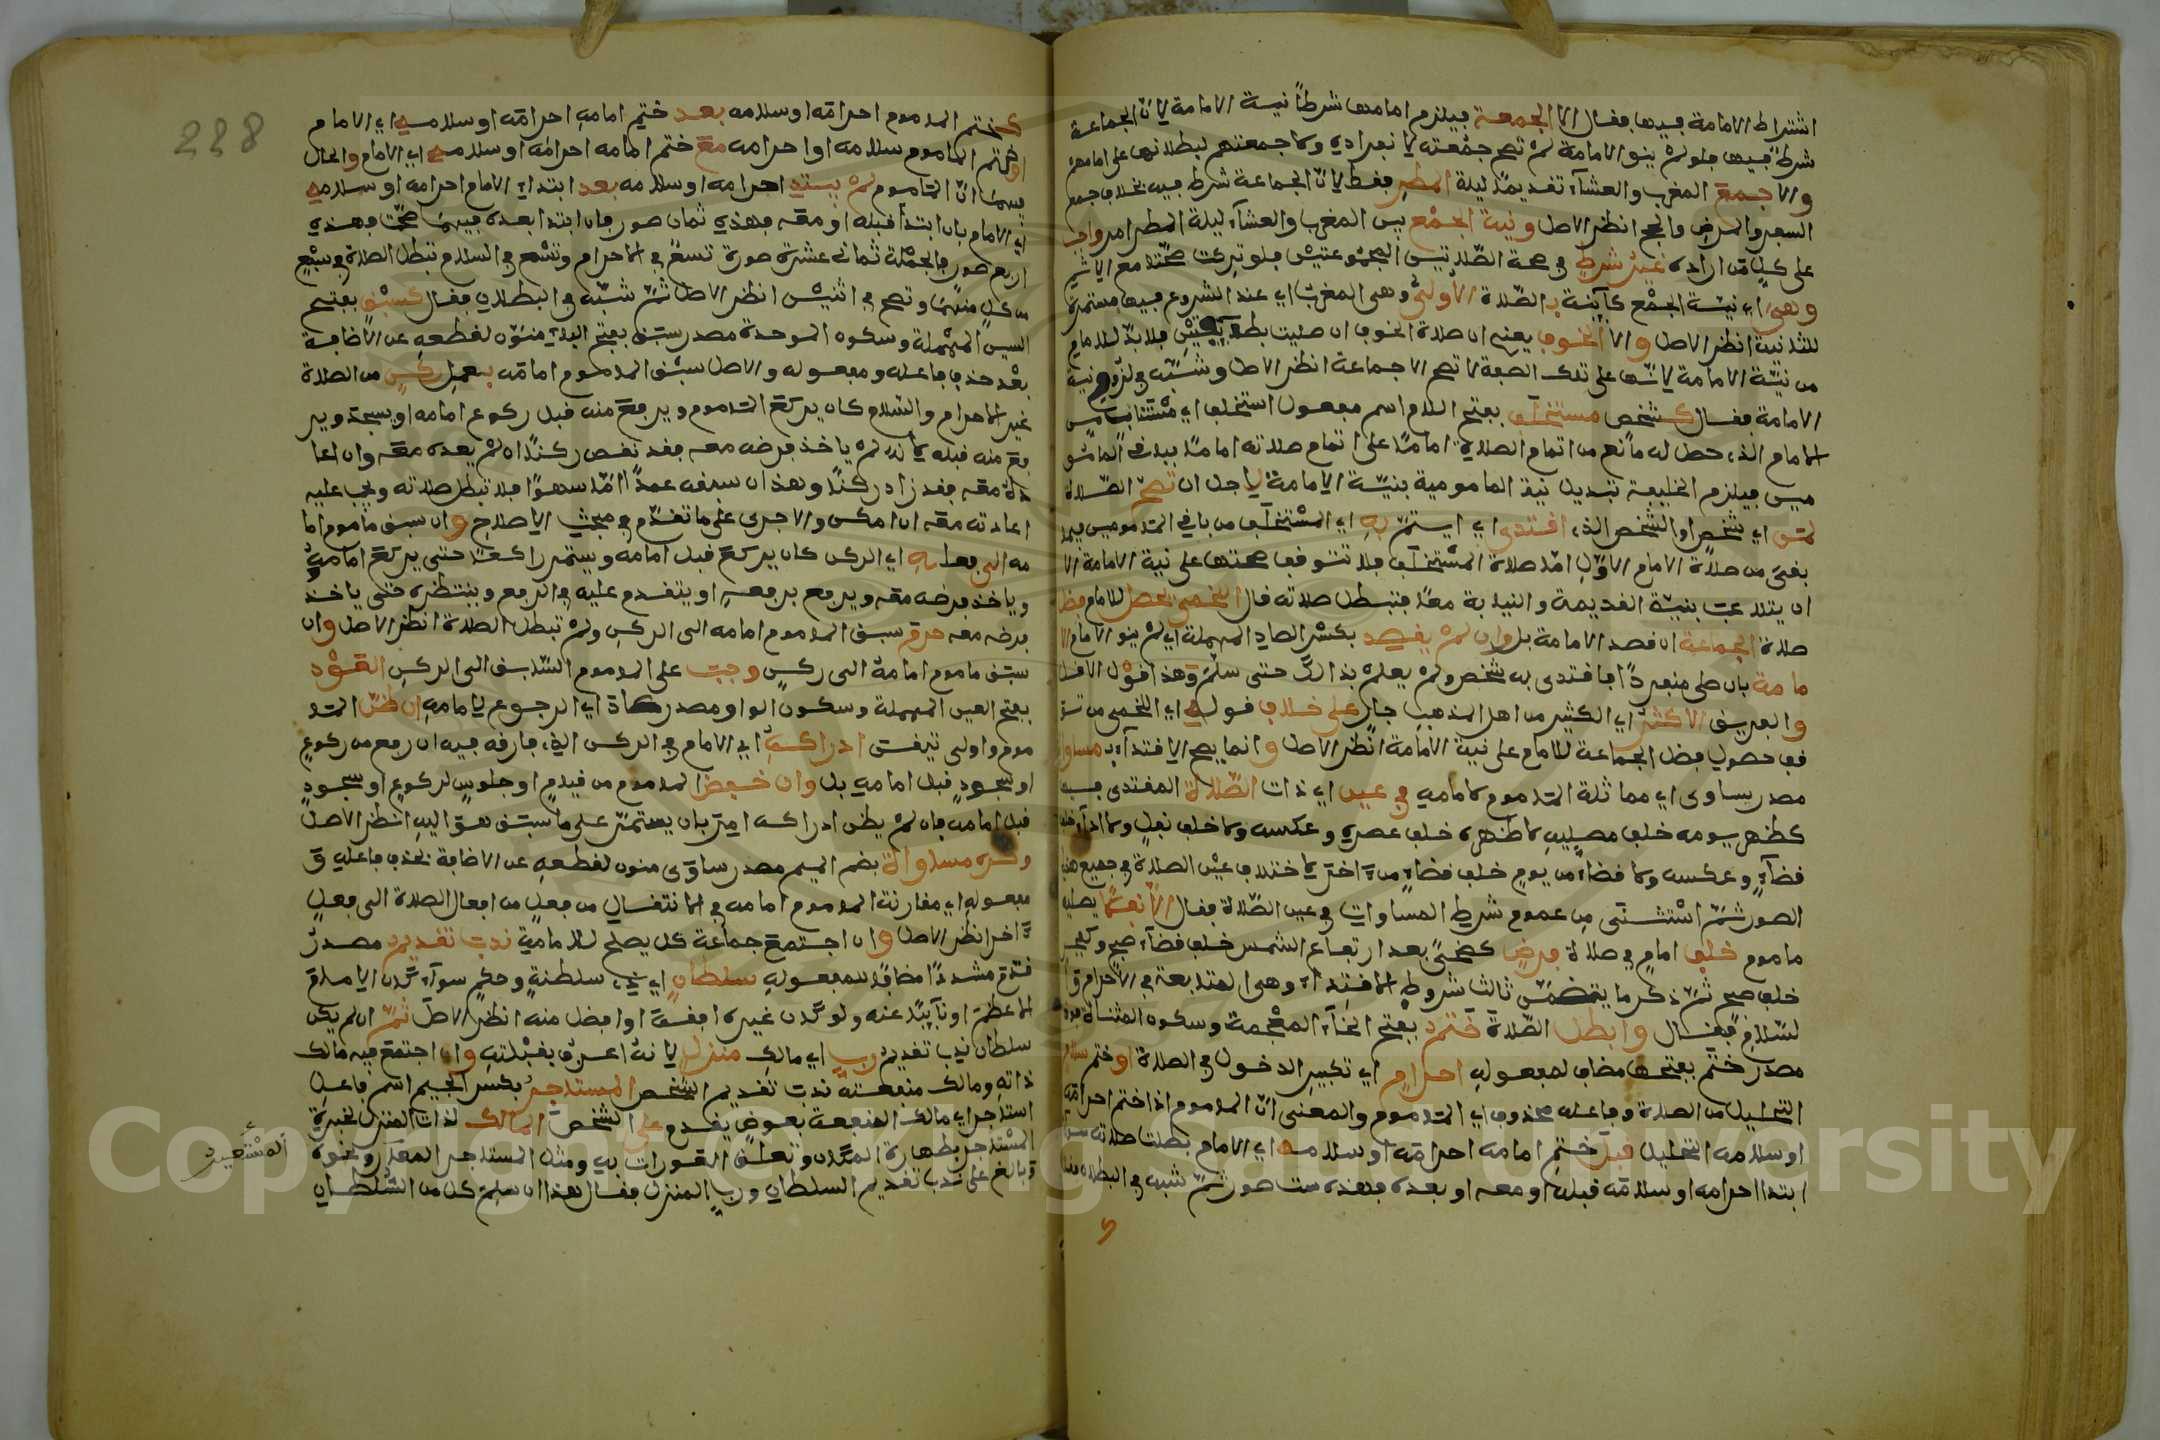 اشتراط الامامة فيها فقال الا الجمعة فيلزم امامها شرطا نية الامامة لان الجماعة
شرط فيها فلو لم ينو الامامة لم تصح جمعته لانفراده ولا جمعتهم لبطلانها على امامهم
والا جمع المغرب والعشاء تقديما ليلة المطر فقط لان الجماعة شرط فيه بخلاف جمع
السفر والمرض والحج انظر الاصل ونية الجمع بين المغرب والعشاء ليلة المطر امر واجب
على كل من اراده غير شرط في صحة الصلاتين المجموعتين فلو تركت صحتا مع الاثم
وهي اي نية الجمع كاينة بالصلاة الاولى وهي المغرب اي عند الشروع فيها مستمرة
للثانية انظر الاصل والا الخوف يعني ان صلاة الخوف ان صليت بطايفتين فلا بد للامام
من نية الامامة لانها على تلك الصفة لا تصح الا جماعة انظر الاصل وشبه في لزوم نية
الامامة فقال كشخص مستخلف بفتح اللام اسم مفعول استخلف اي مستناب من
الامام الذي حصل له مانع من اتمام الصلاة اماما على اتمام صلاته اماما ببقية المامو
مين فيلزم الخليفة تبديل نية المامومية بنية الامامة لاجل ان تصح الصلاة
لمن اي شخص او الشخص الذي اقتدى اي ايتم به اي المستخلف من باقي المامومين فيما
بقي من صلاة الامام الاول اما صلاة المستخلف فلا تتوقف صحتها على نية الامامة الا
ان يتلاعب بنية القديمة والنيابة معا فتبطل صلاته قال اللخمي يحصل للامام فضل
صلاة الجماعة ان قصد الامامة بل وان لم يقصد بكسر الصاد المهملة اي لم ينو الامام الا
مامة بان صلى منفردا فاقتدى به شخص ولم يعلم بذالك حتى سلم وهذا قول الاقل
والفريق الاكثر اي الكثير من اهل المذهب جار على خلاف قوله اي اللخمي من تو
قف حصول فضل الجماعة للامام على نية الامامة انظر الاصل وانما يصح الاقتداء بمساواة
مصدر يساوي اي مماثلة الماموم لامامه في عين اي ذات الصلاة المقتدى فيها
كظهر يومه خلف مصليه لا ظهره خلف عصره وعكسه ولا خلف نفل ولا اداء خلف
قضاء وعكسه ولا قضاء من يوم خلف قضاء من اخر لاختلاف عين الصلاة في جميع هذه
الصور ثم استثنى من عموم شرط المساوات في عين الصلاة فقال الا نفلا يصليه
ماموم خلف امام في صلاة فرض كضحى بعد ارتفاع الشمس خلف قضاء صبح وكفجر
خلف صبح ثم ذكر ما يتضمن ثالث شروط الاقتداء وهي المتابعة في الاحرام وا
لسلام فقال وابطل الصلاة ختم بفتح الخاء المعجمة وسكون المثناة فوق
مصدر ختم بفتحها مضاف لمفعوله احرام اي تكبير الدخول في الصلاة او ختم سلام
التحليل من الصلاة وفاعله محذوف اي الماموم والمعنى ان الماموم اذا ختم احرامه
او سلامه التحليل قبل ختم امامه احرامه او سلامه اي الامام بطلت صلاته سواء
ابتدا احرامه او سلامه قبله او معه او بعده فهذه ست صور ثم شبه في البطلان فقال
كختم الماموم احرامه او سلامه بعد ختم امامه احرامه او سلامه اي الامام
او ختم الماموم سلامه او احرامه مع ختم امامه احرامه او سلامه اي الامام والحال
فيهما ان الماموم لم يبتد احرامه او سلامه بعد ابتداء الامام احرامه او سلامه
اي الامام بان ابتدا قبله او معه فهذه ثمان صور فان ابتدا بعده فيهما صحت فهذه
اربع صور فالجملة ثمانى عشرة صورة تسع في الاحرام وتسع في السلام تبطل الصلاة في سبع
من كل منهما وتصح في اثنين انظر الاصل ثم شبه في البطلان فقال كسبق بفتح
السين المهملة وسكون الموحدة مصدر سبق بفتح الباء منون لقطعه عن الاضافة
بعد حذف فاعله ومفعوله والاصل سبق الماموم امامه بفعل ركن من الصلاة
غير الاحرام والسلام كان يركع الماموم ويرفع منه قبل ركوع امامه او يسجد وير
فع منه قبله لانه لم ياخذ فرضه معه فقد نقص ركنا ان لم يعده معه وان اعا
ده معه فقد زاد ركنا وهذا ان سبقه عمدا اما سهوا فلا تبطل صلاته ويجب عليه
اعادته معه ان امكن والا جرى على ما تقدم في مبحث الاصلاح وان سبق ماموم اما
مه الى فعله اي الركن كان يركع قبل امامه ويستمر راكعا حتى يركع امامه
وياخذ فرضه معه ويرفع برفعه او يتقدم عليه في الرفع وينتظره حتى ياخذ
فرضه معه حرم سبق الماموم امامه الى الركن ولم تبطل الصلاة انظر الاصل وان
سبق ماموم امامه الى ركن وجب على الماموم السابق الى الركن العود
بفتح العين المهملة وسكون الواو مصدر عاد اي الرجوع لامامه ان ظن الما
موم واولى تيقن ادراكه اي الامام في الركن الذي فارقه فيه ان رفع من ركوع
او سجود قبل امامه بل وان خفض الماموم من قيام او جلوس لركوع او سجود
قبل امامه فان لم يظن ادراكه امر بان يستمر على ما سبق هو اليه انظر الاصل
وكره مساواة بضم الميم مصدر ساوى منون لقطعه عن الاضافة بحذف فاعله و
مفعوله اي مقارنة الماموم امامه في الانتقال من فعل من افعال الصلاة الى فعل
اخر انظر الاصل وان اجتمع جماعة كل يصلح للامامة ندب تقديم مصدر
قدم مشددا مضافا لمفعوله سلطان اي ذي سلطنة وحكم سواء كان الامام
الاعظم او نايبا عنه ولو كان غيره افقه او افضل منه انظر الاصل ثم ان لم يكن
سلطان ندب تقديم رب اي مالك منزل لانه اعرف بقبلته وان اجتمع فيه مالك
ذاته ومالك منفعته ندب تقديم الشخص المستاجر بكسر الجيم اسم فاعل
استاجر اي مالك المنفعة بعوض يقدم على الشخص المالك لذات المنزل لخبرة
المستاجر بطهارة المكان وتعلق العورات به ومثل المستاجر المعار ونحوه
وبالغ على ندب تقديم السلطان ورب المنزل فقال هذا ان سلم كل من السلطان
المستعير
228
Copyright © King Saud University